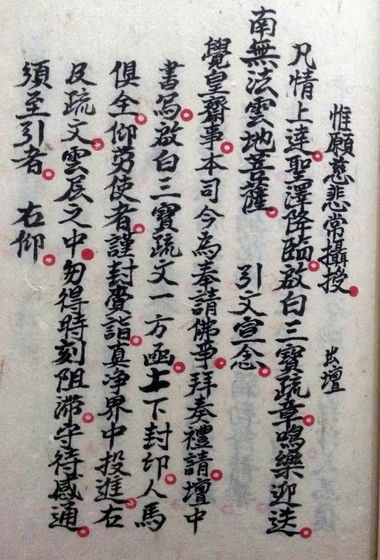 惟願慈悲常攝授　出壇
凡情上達聖澤降臨啟白三寶疏章鳴樂迎送
南無法雲地菩薩　引文宣念
覺皇齋事本司今為奉請佛事拜奏禮請壇中
書寫啟白三寶疏文一方函上下封印人馬
俱全仰勞使者謹封賫詣真淨界中投進右
及疏文雲辰之中勿得時刻阻滯守待感通
須至引者　右仰